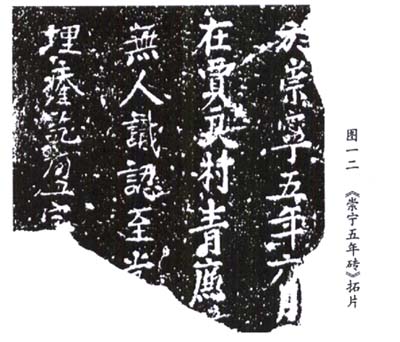 於崇寧五年六月
在賈良村青
無人識認至
埋瘞訖
图一二 《崇宁五年砖》拓片